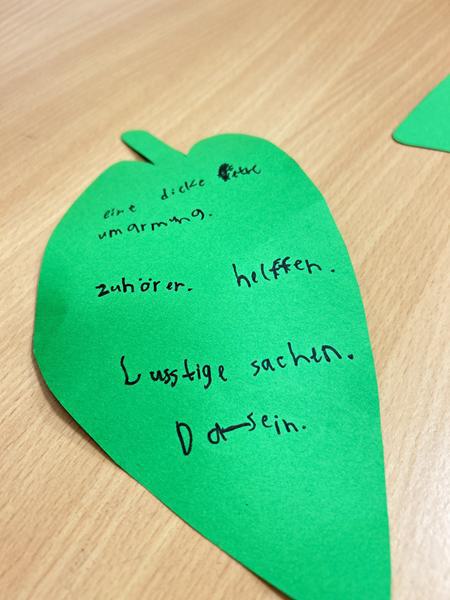 eine dicke fette
umarmung.
zuhörer. helffen.
Lusstige sachen.
Da-sein.